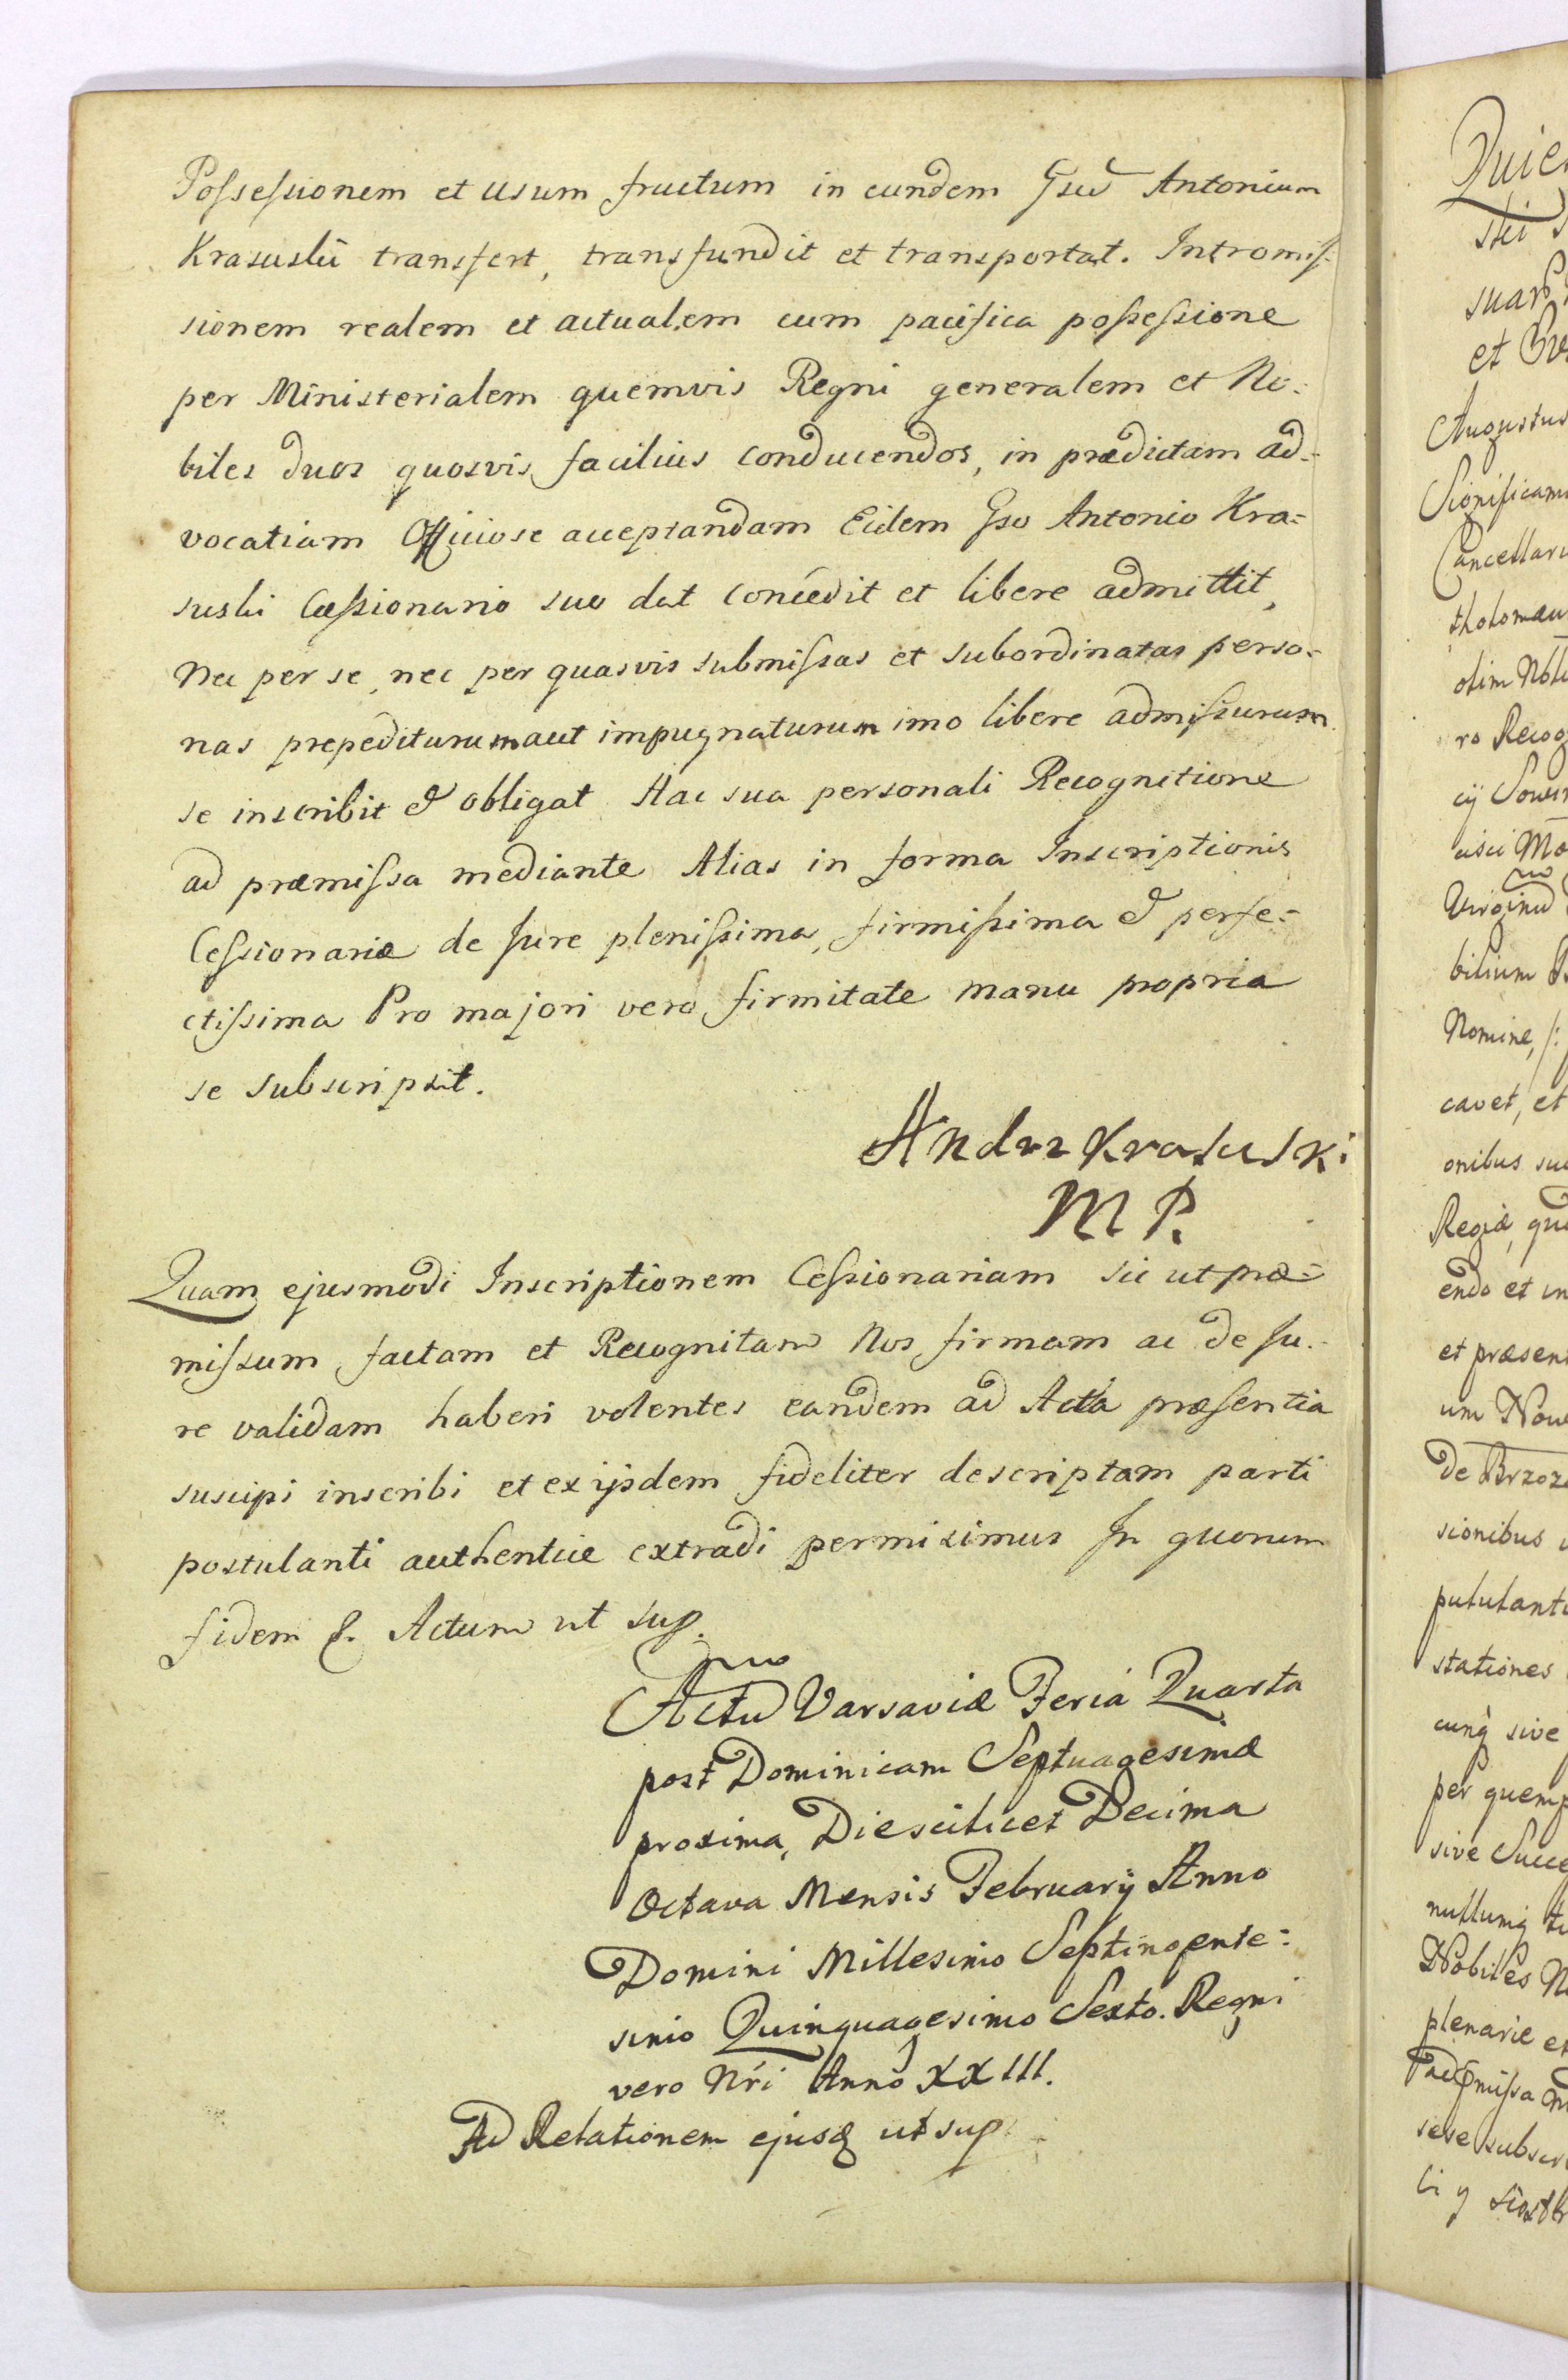 Possessionem et usum fructum in eundem Gsu͠ Antonium
Krasuski transfert, transfundit et transportat. Intromis-
sionem realem et actualem cum pacifica possessione
per Ministerialem quemvis Regni generalem et No-
biles duos quosvis facilius conducendos, in prædictam ad-
vocatiam Officiose acceptandam Eidem Gso Antonio Kra-
suski Cæssionario suo dat concedit et libere admittit,
nec per se, nec per quasvis submissas et subordinatas perso-
nas prepediturum aut impugnaturum imo libere admissurum
se inscribit & obligat Hac sua personali Recognitione
ad præmissa mediante Alias in forma Inscriptionis
Cessionariæ de Jure plenissima, firmissima & perfe-
ctissima Pro majori vero firmitate manu propria
se subscripsit.
Andrz Krasuski
M P.
Quam ejusmodi Inscriptionem Cessionariam sic ut præ-
missum factam et Recognitam Nos firmam ac de Ju-
re validam haberi volentes eandem ad Acta præsentia
suscipi inscribi et ex ijsdem fideliter descriptam parti
postulanti authentice extradi permisimus In quorum
fidem &. Actum ut sup.
Actu͠ Varsaviæ Feria Quarta
post Dominicam Septuagesimæ
proxima, Die scilicet Decima
Octava Mensis February Anno
Domini Millesimo Septingente-
simo Quinquagesimo Sexto. Regni
vero Nri Anno XXIII.
Ad Relationem ejusq ut sup
Quie
ski
suar
et
Augustus
Significam
Cancellari
tholomæu
olim Nbli
ro Recog
cij
Virginu͠
bilium
Nomine, /:
cavet, et
onibus su
Regiæ, qu
endo et in
et præsen
um Now
de Brzoz
sionibus
pulutant
stationes
cunq sive
per quemp
sive Succe
nullumq
Nobiles N
plenarie et
Præmissa
sese subscr